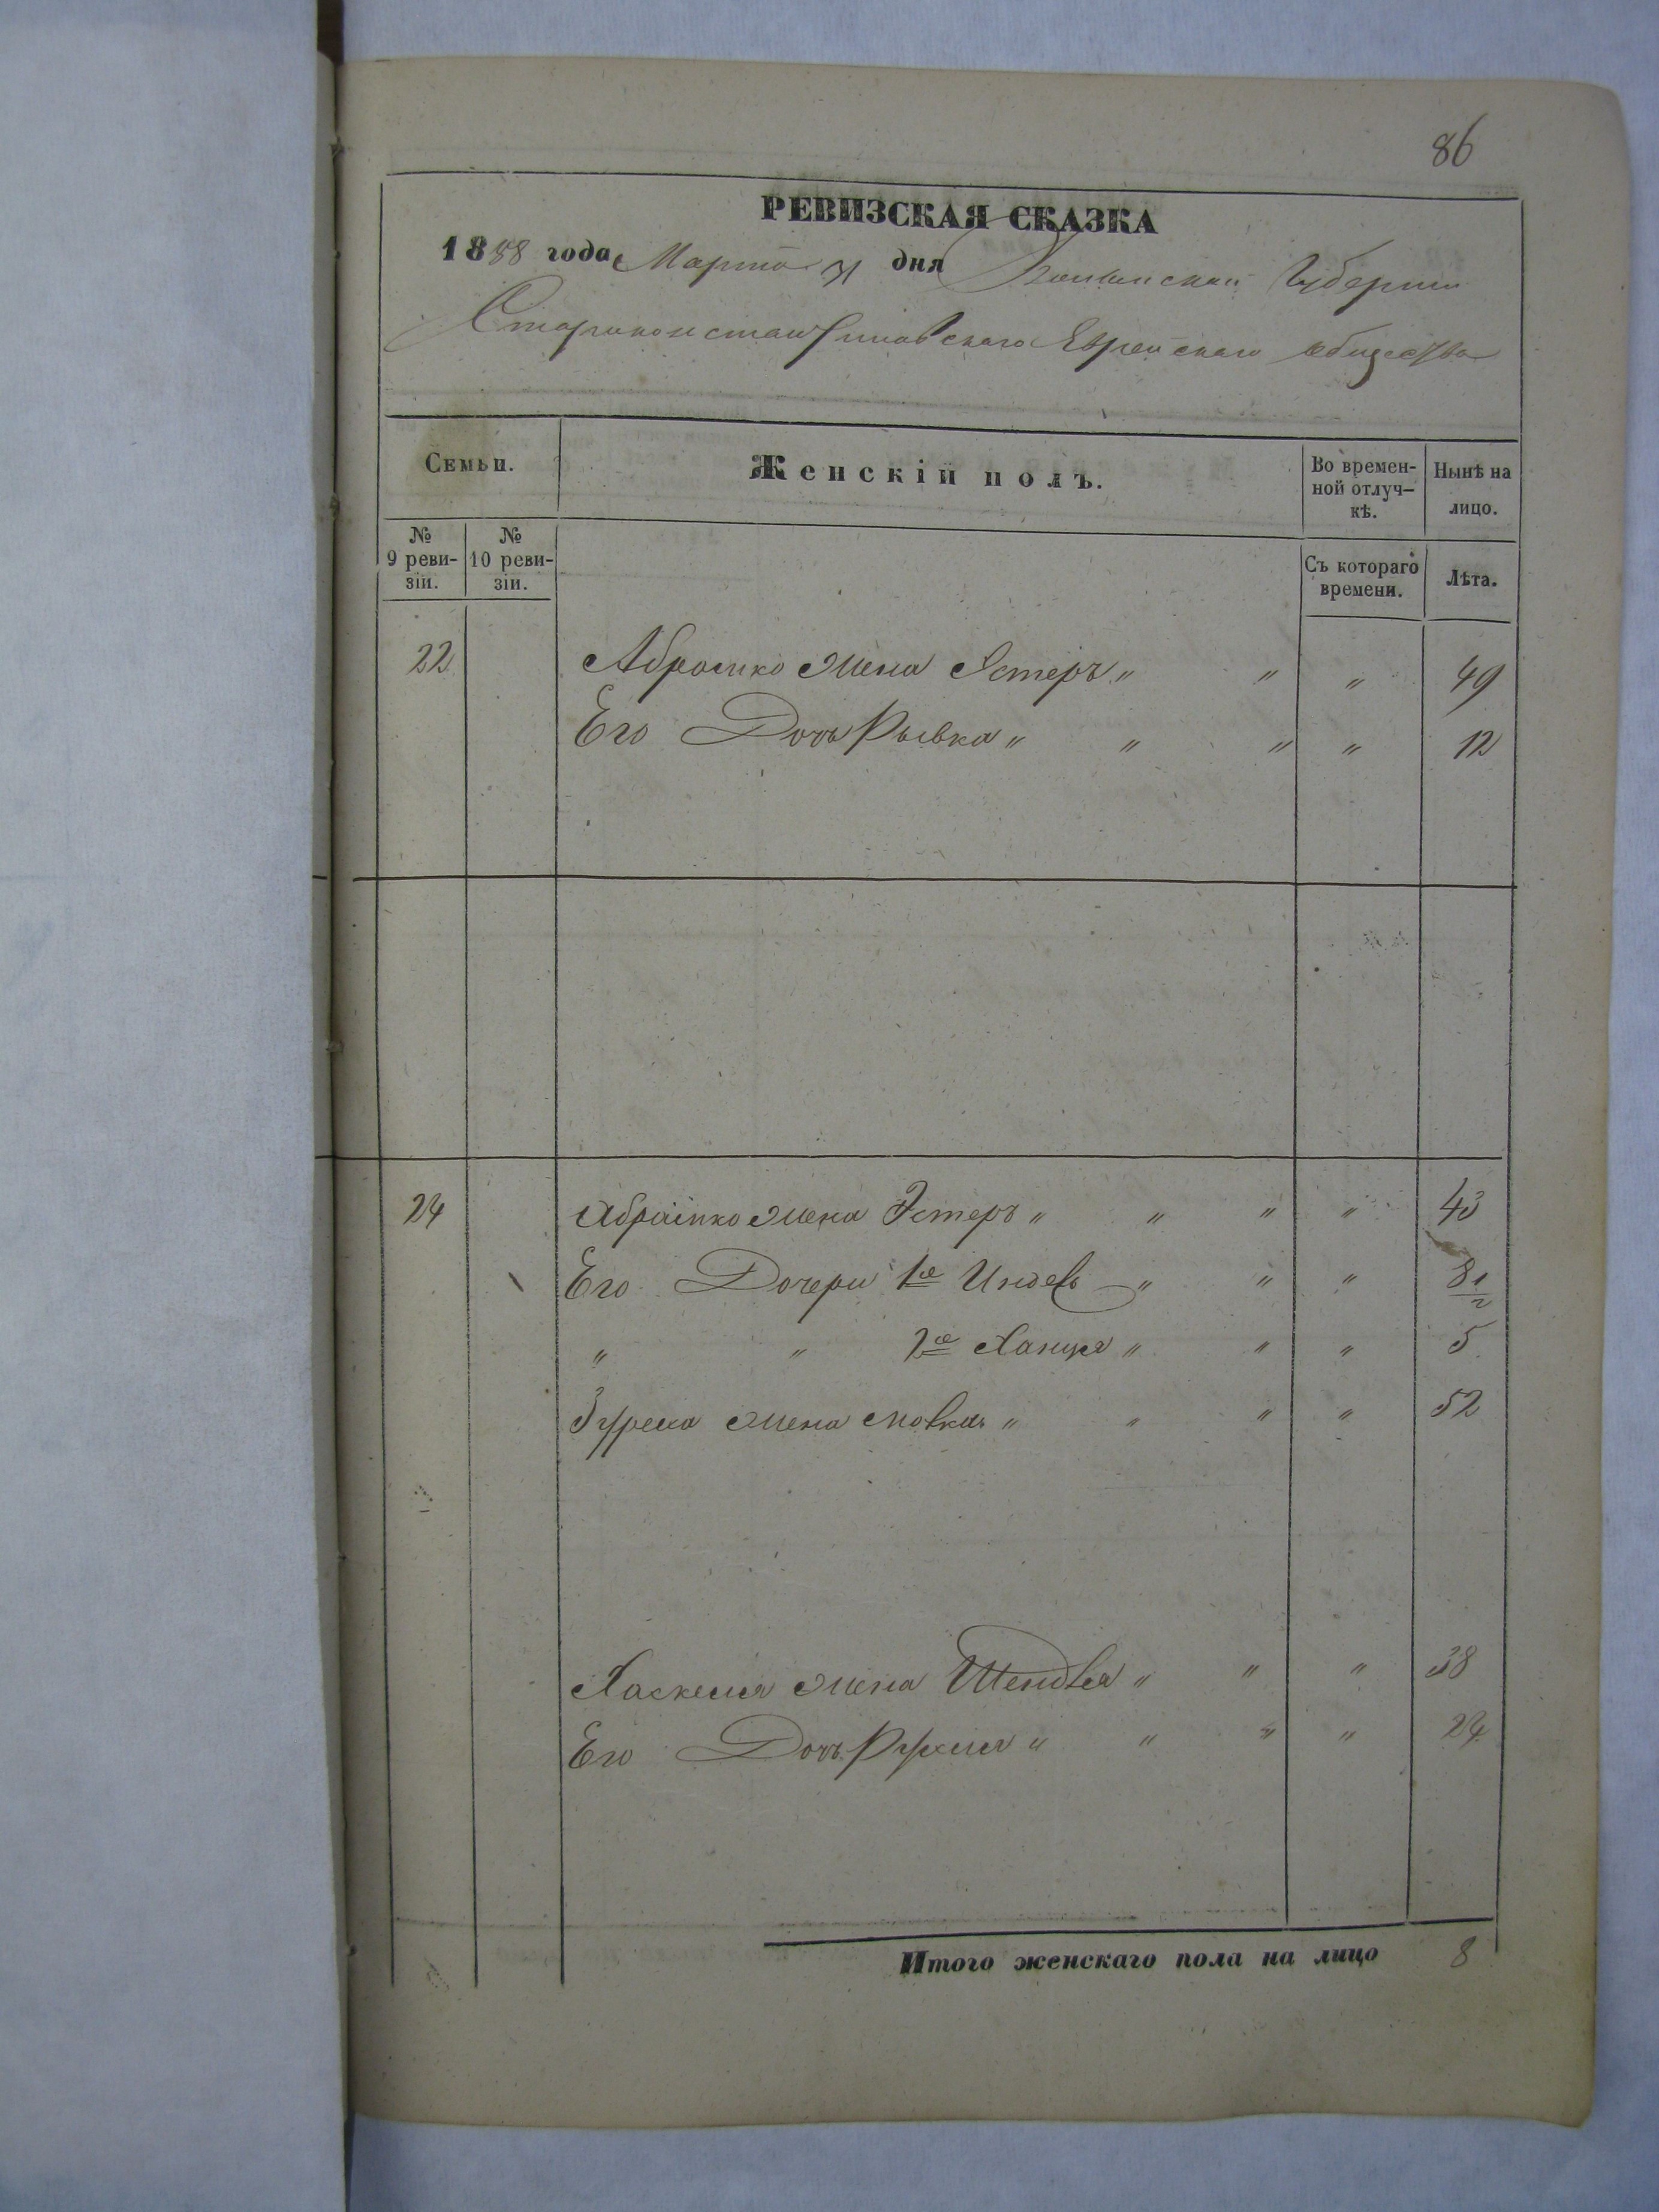 86
РЕВИЗСКАЯ СКАЗКА
1858 года Марта 31 дня Волынской Губернии
Староконстантиновскаго Еврейскаго общества
Семьи.
Женскій полъ.
Во времен-
ной отлуч-
кѣ.
Нынѣ на
лицо.
№
9 реви-
зіи.
№
10 реви-
зіи.
Съ котораго
времени.
Лѣта.
22 Абрамко жена Эстеръ " " " 49
Его Дочь Рывка " " " " 12
24 Абрамко жена Эстеръ " " " " 43
Его Дочери 1я " " " 8 1/2
" " 2я Ханця " " " 5
жена " " " " 52
Хаскеля жена Шендля " " " 38
Его Дочь Рухля " " " " 24
Итого женскаго пола на лицо 8